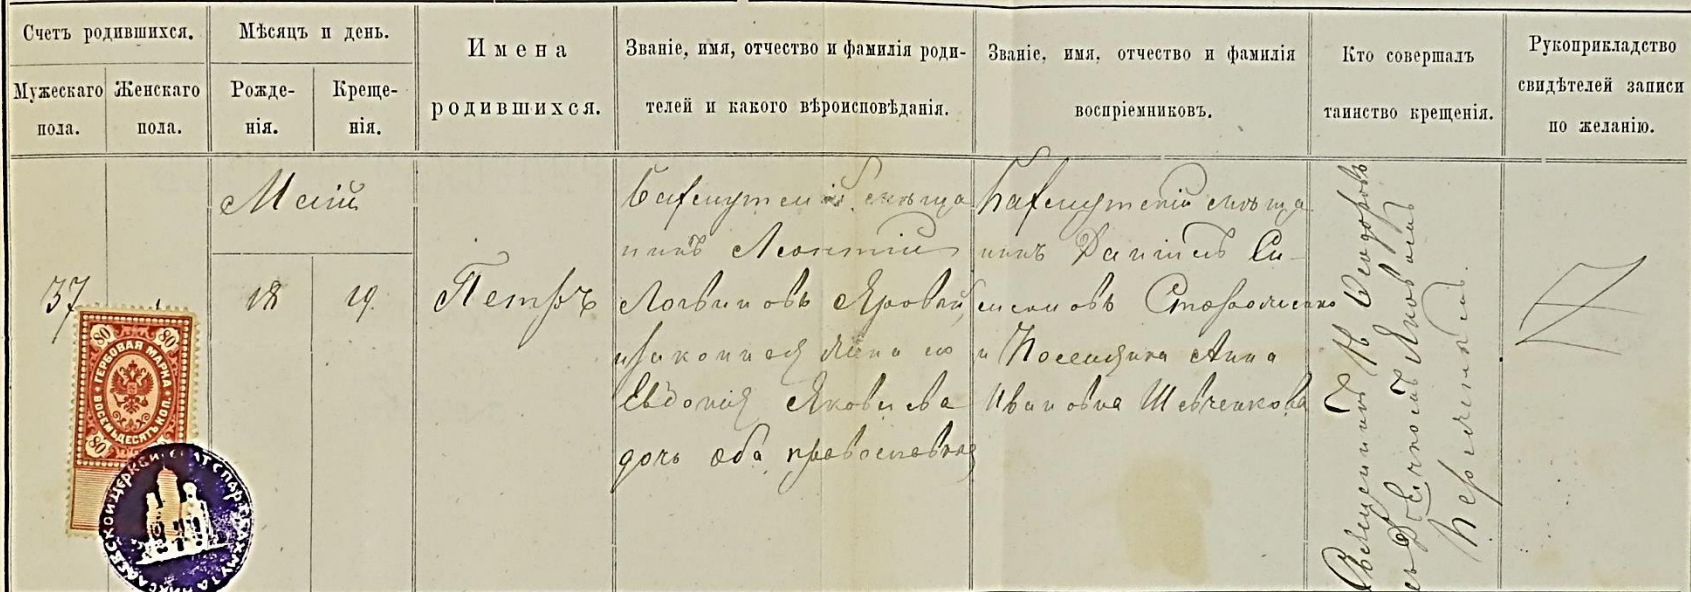 Счетъ родившихся.
Мужескаго пола.
Женскаго пола.
Мѣсяцъ и день.
Рожде-
нія.
Креще-
нія.
Имена
родившихся.
Званіе, имя, отчество и фамилія роди-
телей и какого вѣроисповѣданія.
Званіе, имя, отчество и фамилія
воспріемниковъ.
Кто совершалъ
таинство крещенія.
Рукоприкладство
свидѣтелей записи
по желанію.
37
Май
18
19
Петръ
Бахмутскій мѣща
нинъ Леонтій
Логвиновъ Яровый
и законная жена его
Евдокія Яковлева
дочь оба православные
Бахмутскій мѣща
нинъ Даніилъ Си-
меоновъ
и Анна
Ивановна Шевченкова
Священникъ Ѳеодоровъ
съ
80 80
ГЕРБОВАЯ МАРКА
ВОСЕМЬДЕСЯТЪ КОП.
80
ЦЕРКВИ